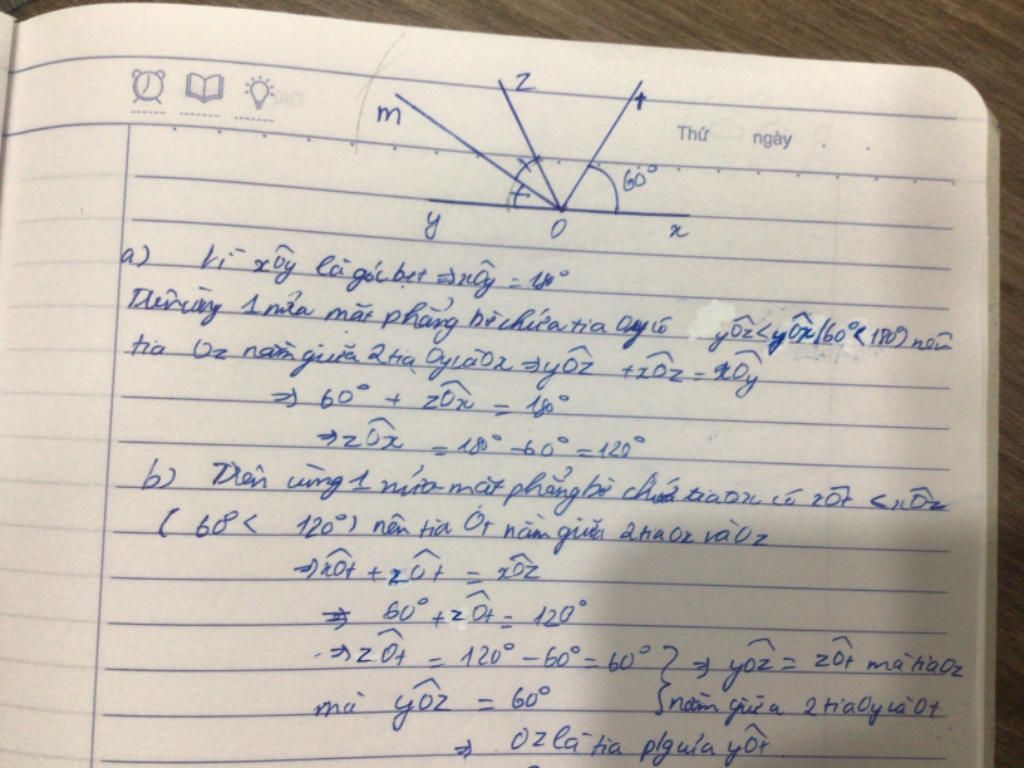 z
t
m
Thứ ngày
60°
y O x
a) Vì xÔy là góc bẹt ⇒ xÔy = 180°
Trên cùng 1 nửa mặt phẳng bờ chứa tia Oy có yÔz < yÔx (60° < 180°) nên
tia Oz nằm giữa 2 tia Oy và Ox ⇒ yÔz + xÔz = xÔy
⇒ 60° + zÔx = 180°
⇒ zÔx = 180° - 60° = 120°
b) Trên cùng 1 nửa mặt phẳng bờ chứa tia Ox có xÔt < xÔz
( 60° < 120°) nên tia Ot nằm giữa 2 tia Ox và Oz
⇒ xÔt + zÔt = xÔz
⇒ 60° + zÔt = 120°
⇒ zÔt = 120° - 60° = 60° } ⇒ yÔz = zÔt mà tia Oz
mà yÔz = 60° { nằm giữa 2 tia Oy và Ot
⇒ Oz là tia p/giác yÔt